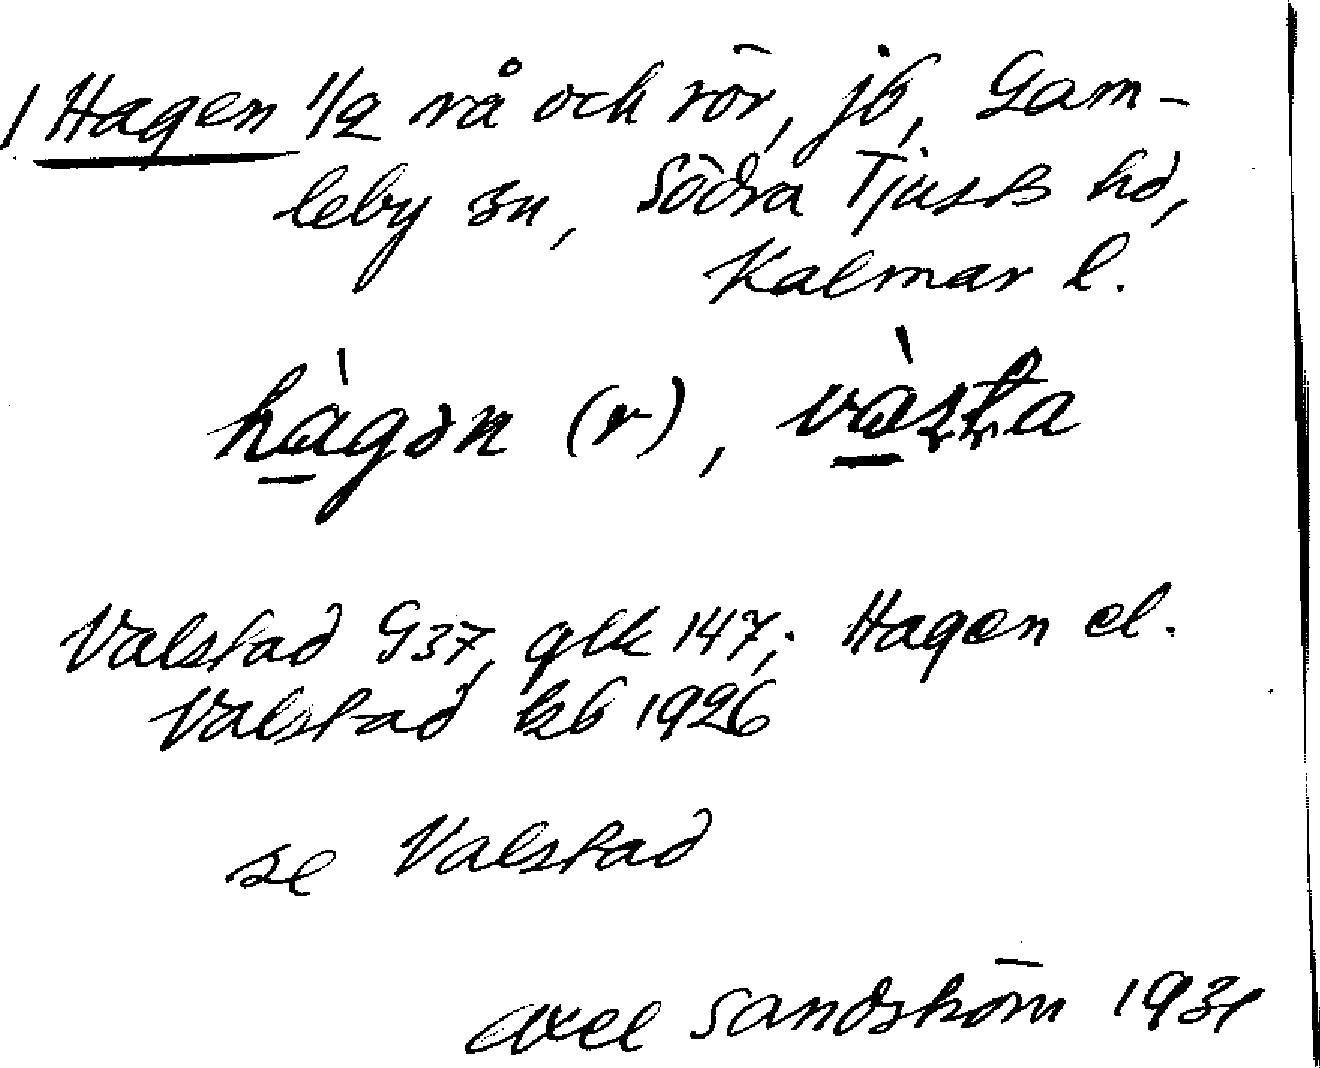 / Hagen 1/2 rå och rör, jb, Gam-
leby sn, Södra Tjusts hd,
Kalmar l.
hàgən (r), vàsta
Valstad G37, glk 147,; Hagen el.
Valstad kb 1926
se Valstad
Axel Sandström 1931